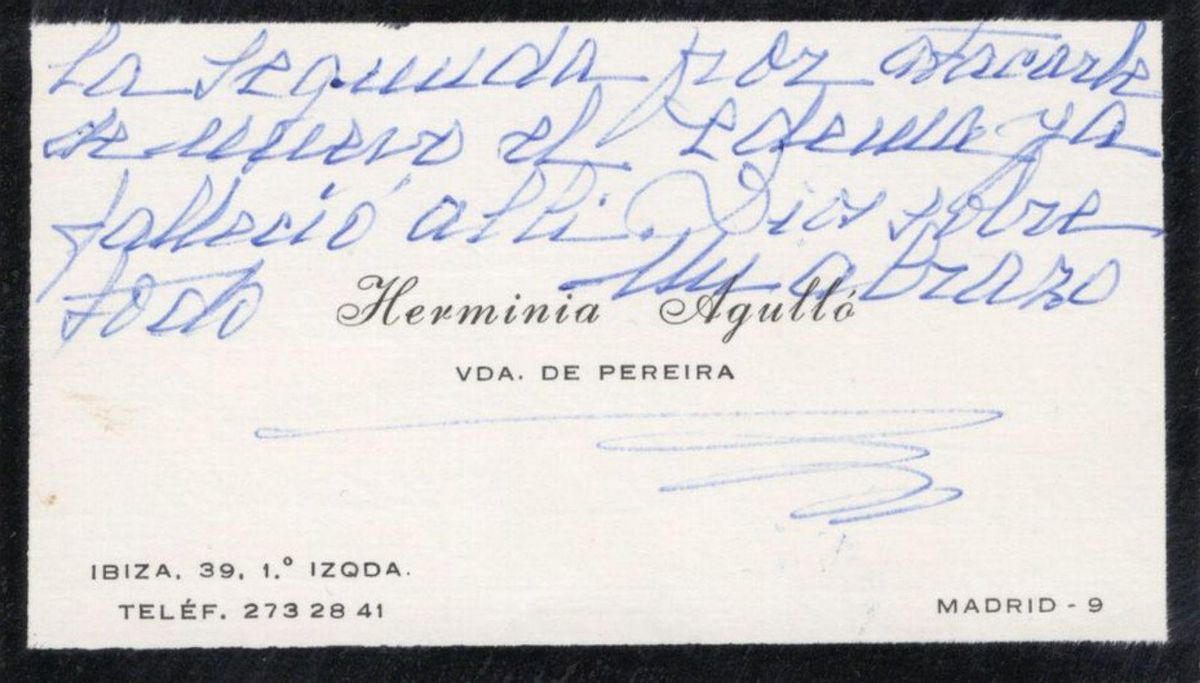 La segunda por atacarle
de nuevo el edema ya
falleció allí. Dios sobre
todo Un abrazo
Herminia Agulló
VDA. DE PEREIRA
IBIZA, 39, 1.º IZQDA.
TELÉF. 273 28 41
MADRID - 9